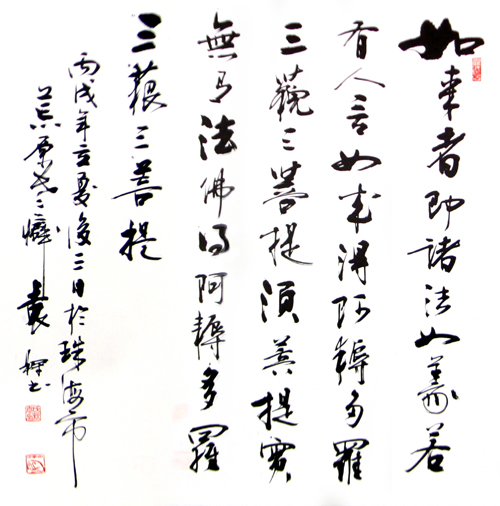 如来者即諸法如義若
有人言如来得阿耨多羅
三藐三菩提須菩提實
無有法佛得阿耨多羅
三藐三菩提
丙戌年立夏後三日於珠海市
荒原袁書